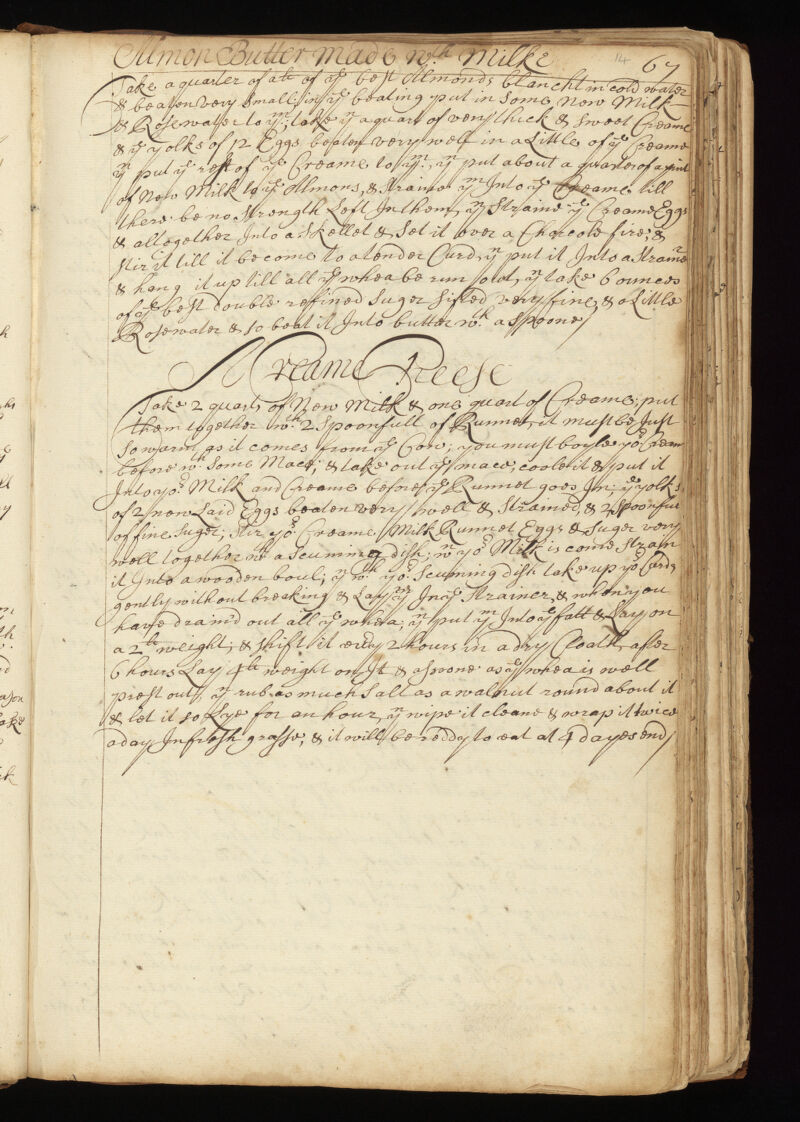 Almon Butter Made wth Milke 14 67
Take a quarter of a lb of ye best Almonds blancht in cold water
& beaten very small; in ye beating put in some New Milk
& Rosewater to ym; take yn a quart of very thick & sweet Creame
& ye yolks of 12 Eggs beaten very well in a Little of ye Creame
yn put ye rest of ye Creame to ym; yn put about a quarter of a pint
of New Milk to ye Almons, & straine ym Into ye Creame till
there be no strength Left In them, yn Straine ye Creame Eggs
& altogether Into a Skellet & Set it over a Charcole fire, &
stir it till it become to a tender Curd, yn put it Into a straner
& hang it up till all ye whea be run out, yn take 6 ounces
of ye best double refined Suger sifted very fine, & a Little
Rosewater & so beat it Into butter wth a spoone/
A Creame Cheese
Take 2 quarts of New Milk & one quart of Creame; put
them together wth 2 Spoonfull of Runnet, it must be Just
so warm as it comes from ye Cow; you must boyle yor Cream
before wth some Mace; & take out ye mace; coole it & put it
Into yor Milk and Creame before ye Runnet goes In; ye yolks
of 2 new Laid Eggs beaten very well & Strained, & 2 Spoonfull
of fine Suger; stir yor Creame Milk Runnet Eggs & Suger very
well together wth a Scumming dish; wn yor Milk is come Strain
it Into a wooden boul; yn wth yor Scuming dish take up yor Curds
gently without breaking & Lay ym In ye Strainer, & when you
have drain'd out all ye whea, yn put ym Into ye fatt & Lay on
a 2lb weight; & shift it every 2 hours in a dry Cloath, after
6 hours Lay 4lb weight on It & as soone as ye whea is well
prest out, yn rub as much salt as a walnut round about it
& let it so Lye for an hour, yn wipe it cleane & wrap it twice
a day In fresh grasse, & it will be reddy to eat at 4 dayes end/